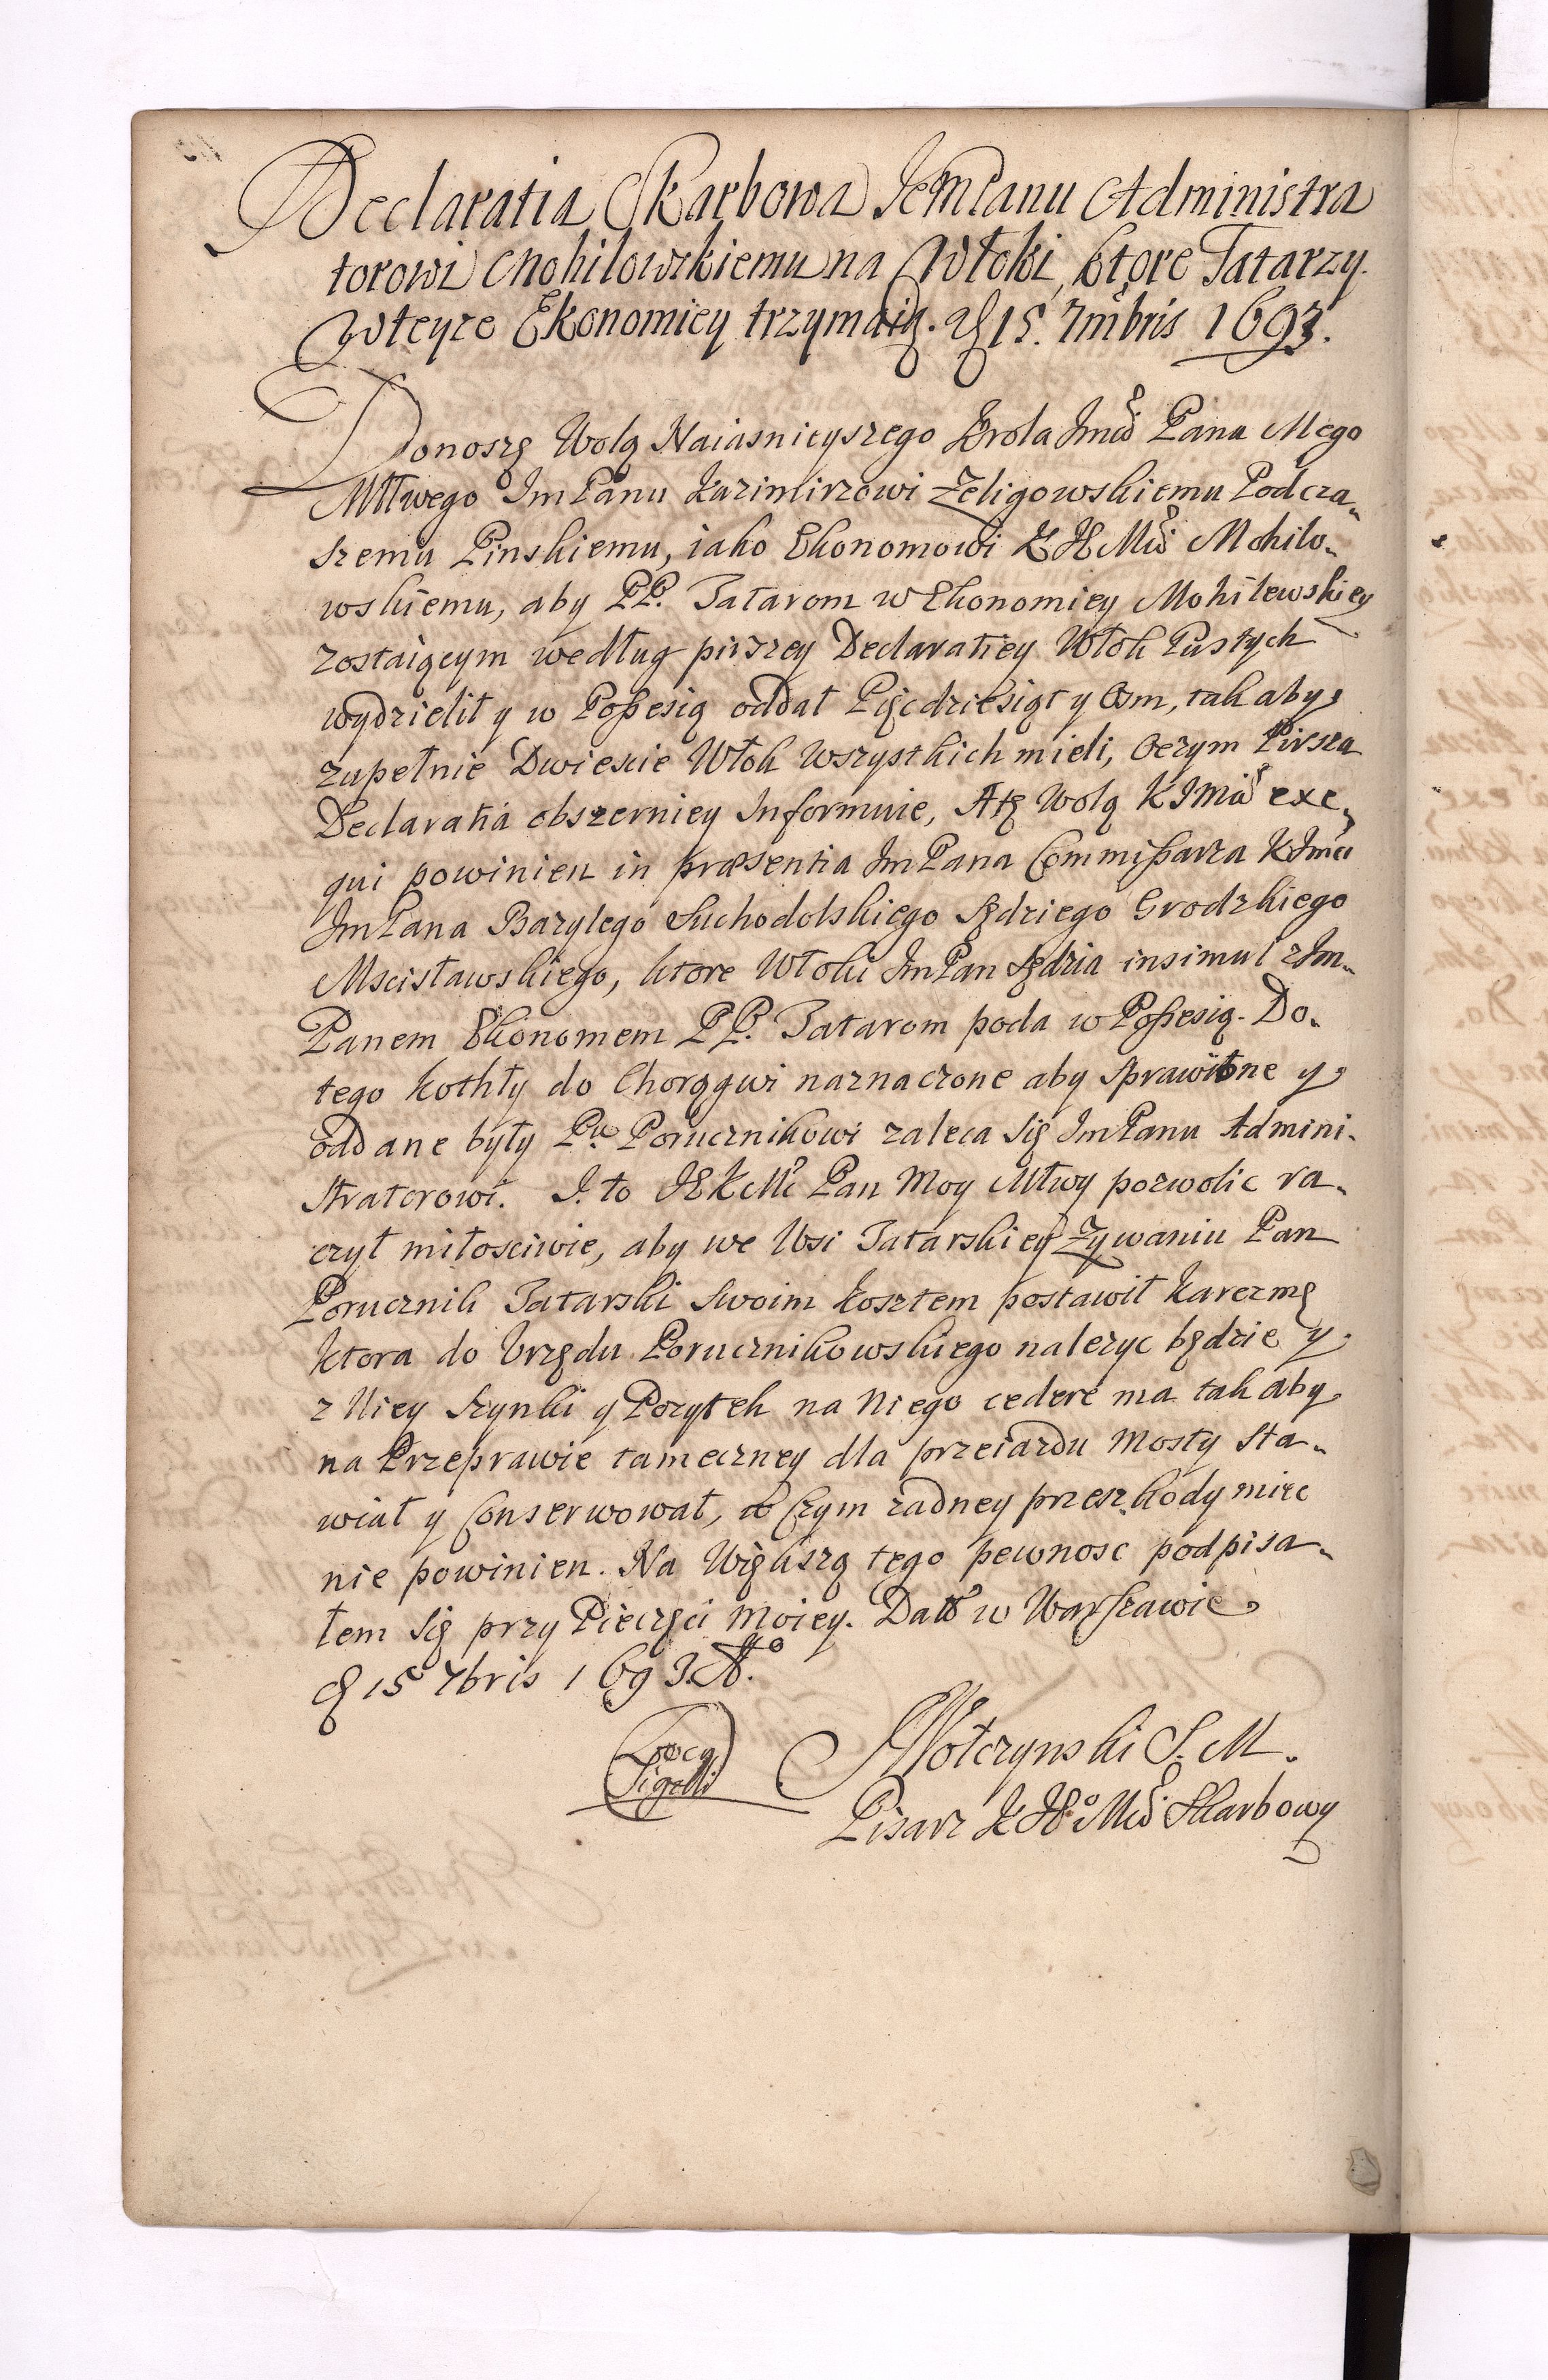 Declaratia Skarbowa JemPanu Administra
torowi Mohilowskiemu na Włoki, ktore Tatarzy
wteyze Ekonomiey trzymaią. d 15. 7mbris 1693.
Donoszę Wolą Naiasnieyszego Krola Jmci Pana Mego
Młłwego ImPanu Kazimirzowi Zeligowskiemu Podcza„
szemu Pinskiemu, iako Ekonomowi K JE Mci Mohilo„
wskiemu, aby PP. Tatarom w Ekonomiey Mohilewskiey
zostaiącym według pirszey Declaratiey Włok Pustych
wydzielił y w Possesią oddał Pięcdziesiąt y Osm, tak aby
zupełnie Dwiescie Włok wszystkich mieli, Oczym Pirsza
Declaratia obszerniey Informuie, Atę Wolą KJMci exe„
qui powinien in præsentia ImPana Commissarza KJmci
ImPana Bazylego Suchodolskiego Sędziego Grodzkiego
Mscisławskiego, ktore Włoki ImPan Sędzia insimul zIm„
Panem Ekonomem PP. Tatarom poda w Possesią. Do„
tego Kothły do Chorągwi naznaczone aby sprawione y
oddane były Pu Porucznikowi zaleca się ImPanu Admini„
stratorowi. I to JEKMc Pan Moy Młwy pozwolic ra„
czył miłosciwie, aby we Wsi Tatarskiey Zywaniu Pan
Porucznik Tatarski Swoim kosztem postawił Karczmę
ktora do Urzędu Porucznikowskiego nalezyc będzie y
z Niey Szynki y Pozytek na Niego cedere ma tak aby
na Przeprawie tameczney dla przeiazdu Mosty sta„
wiał y Conserwował, w Czym zadney przeszkody miec
nie powinien. Na Większą tego pewnosc podpisa„
łem się przy Pieczęci Moiey. Datt w Warszawie
d 15 7bris 1693. Ao
Locq Sigelli
Wołczynski S. M.
Pisarz K JEo Mci Skarbowy